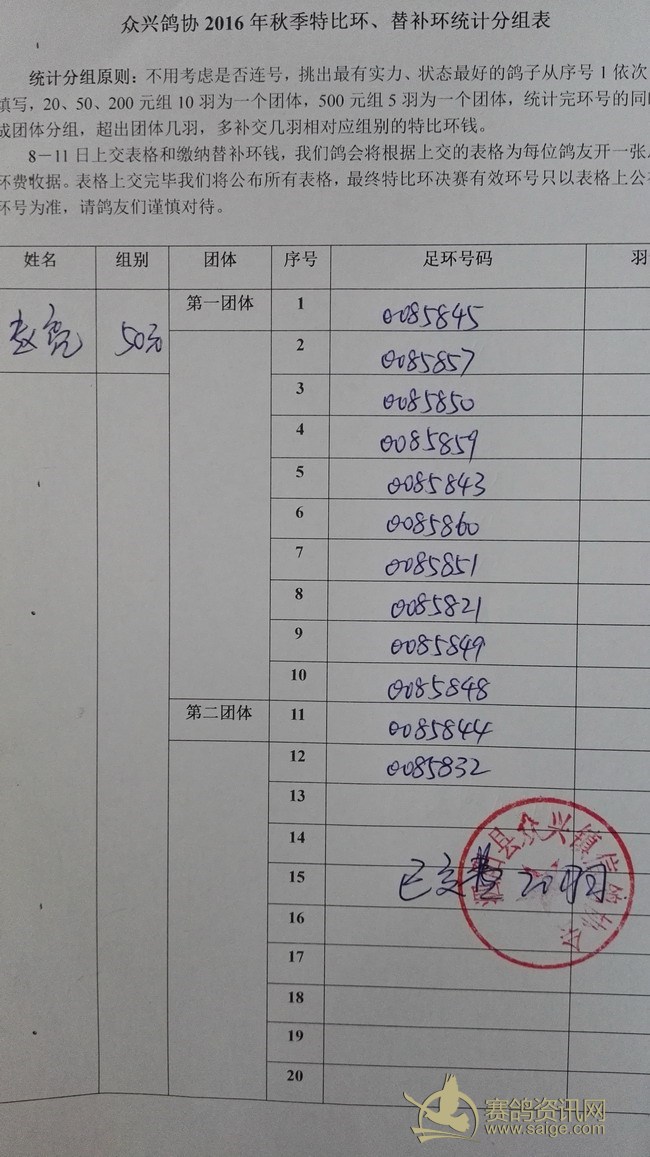 众兴鸽协2016年秋季特比环、替补环统计分组表
统计分组原则：不用考虑是否连号，挑出最有实力、状态最好的鸽子从序号1依次
填写，20、50、200元组10羽为一个团体，500元组5羽为一个团体，统计完环号的同
成团体分组，超出团体几羽，多补交几羽相对应组别的特比环钱。
8－11日上交表格和缴纳替补环钱，我们鸽会将根据上交的表格为每位鸽友开一张
环费收据。表格上交完毕我们将公布所有表格，最终特比环决赛有效环号只以表格上公
环号为准，请鸽友们谨慎对待。
姓名 组别 团体 序号 足环号码 羽
赵亮 50元 第一团体 1 0085845
2 0085857
3 0085850
4 0085859
5 0085843
6 0085860
7 0085851
8 0085821
9 0085849
10 0085848
第二团体 11 0085844
12 0085832
13
14
15 已交费 20羽
16
17
18
19
20
县众兴镇信鸽协会
赛鸽资讯网
www.saige.com